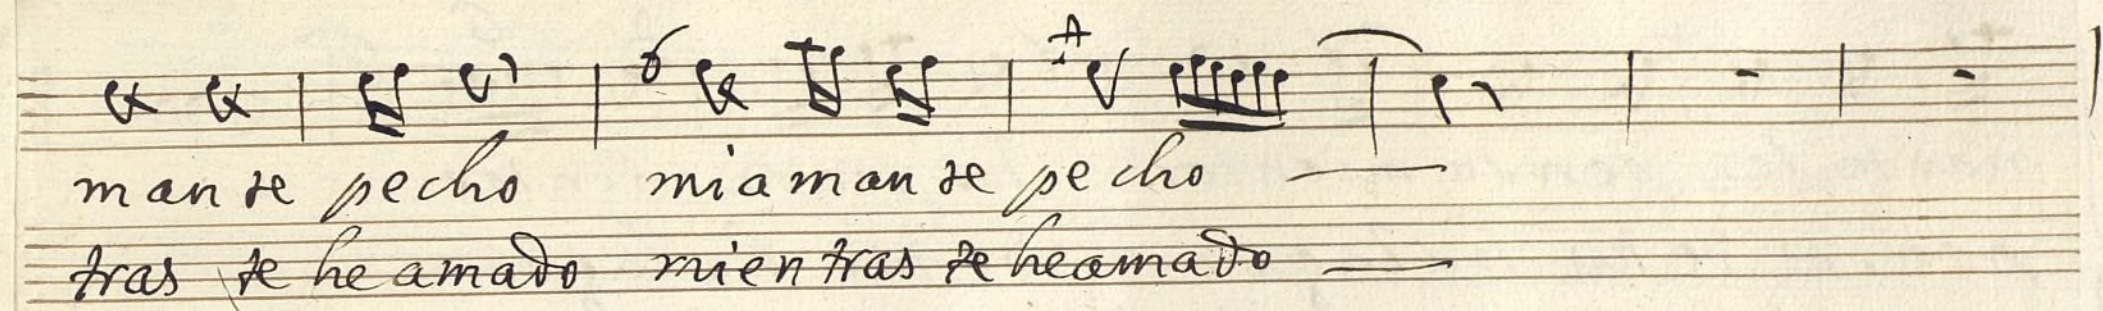 man te pecho miaman te pe cho
tras te he amado mien tras te he amado